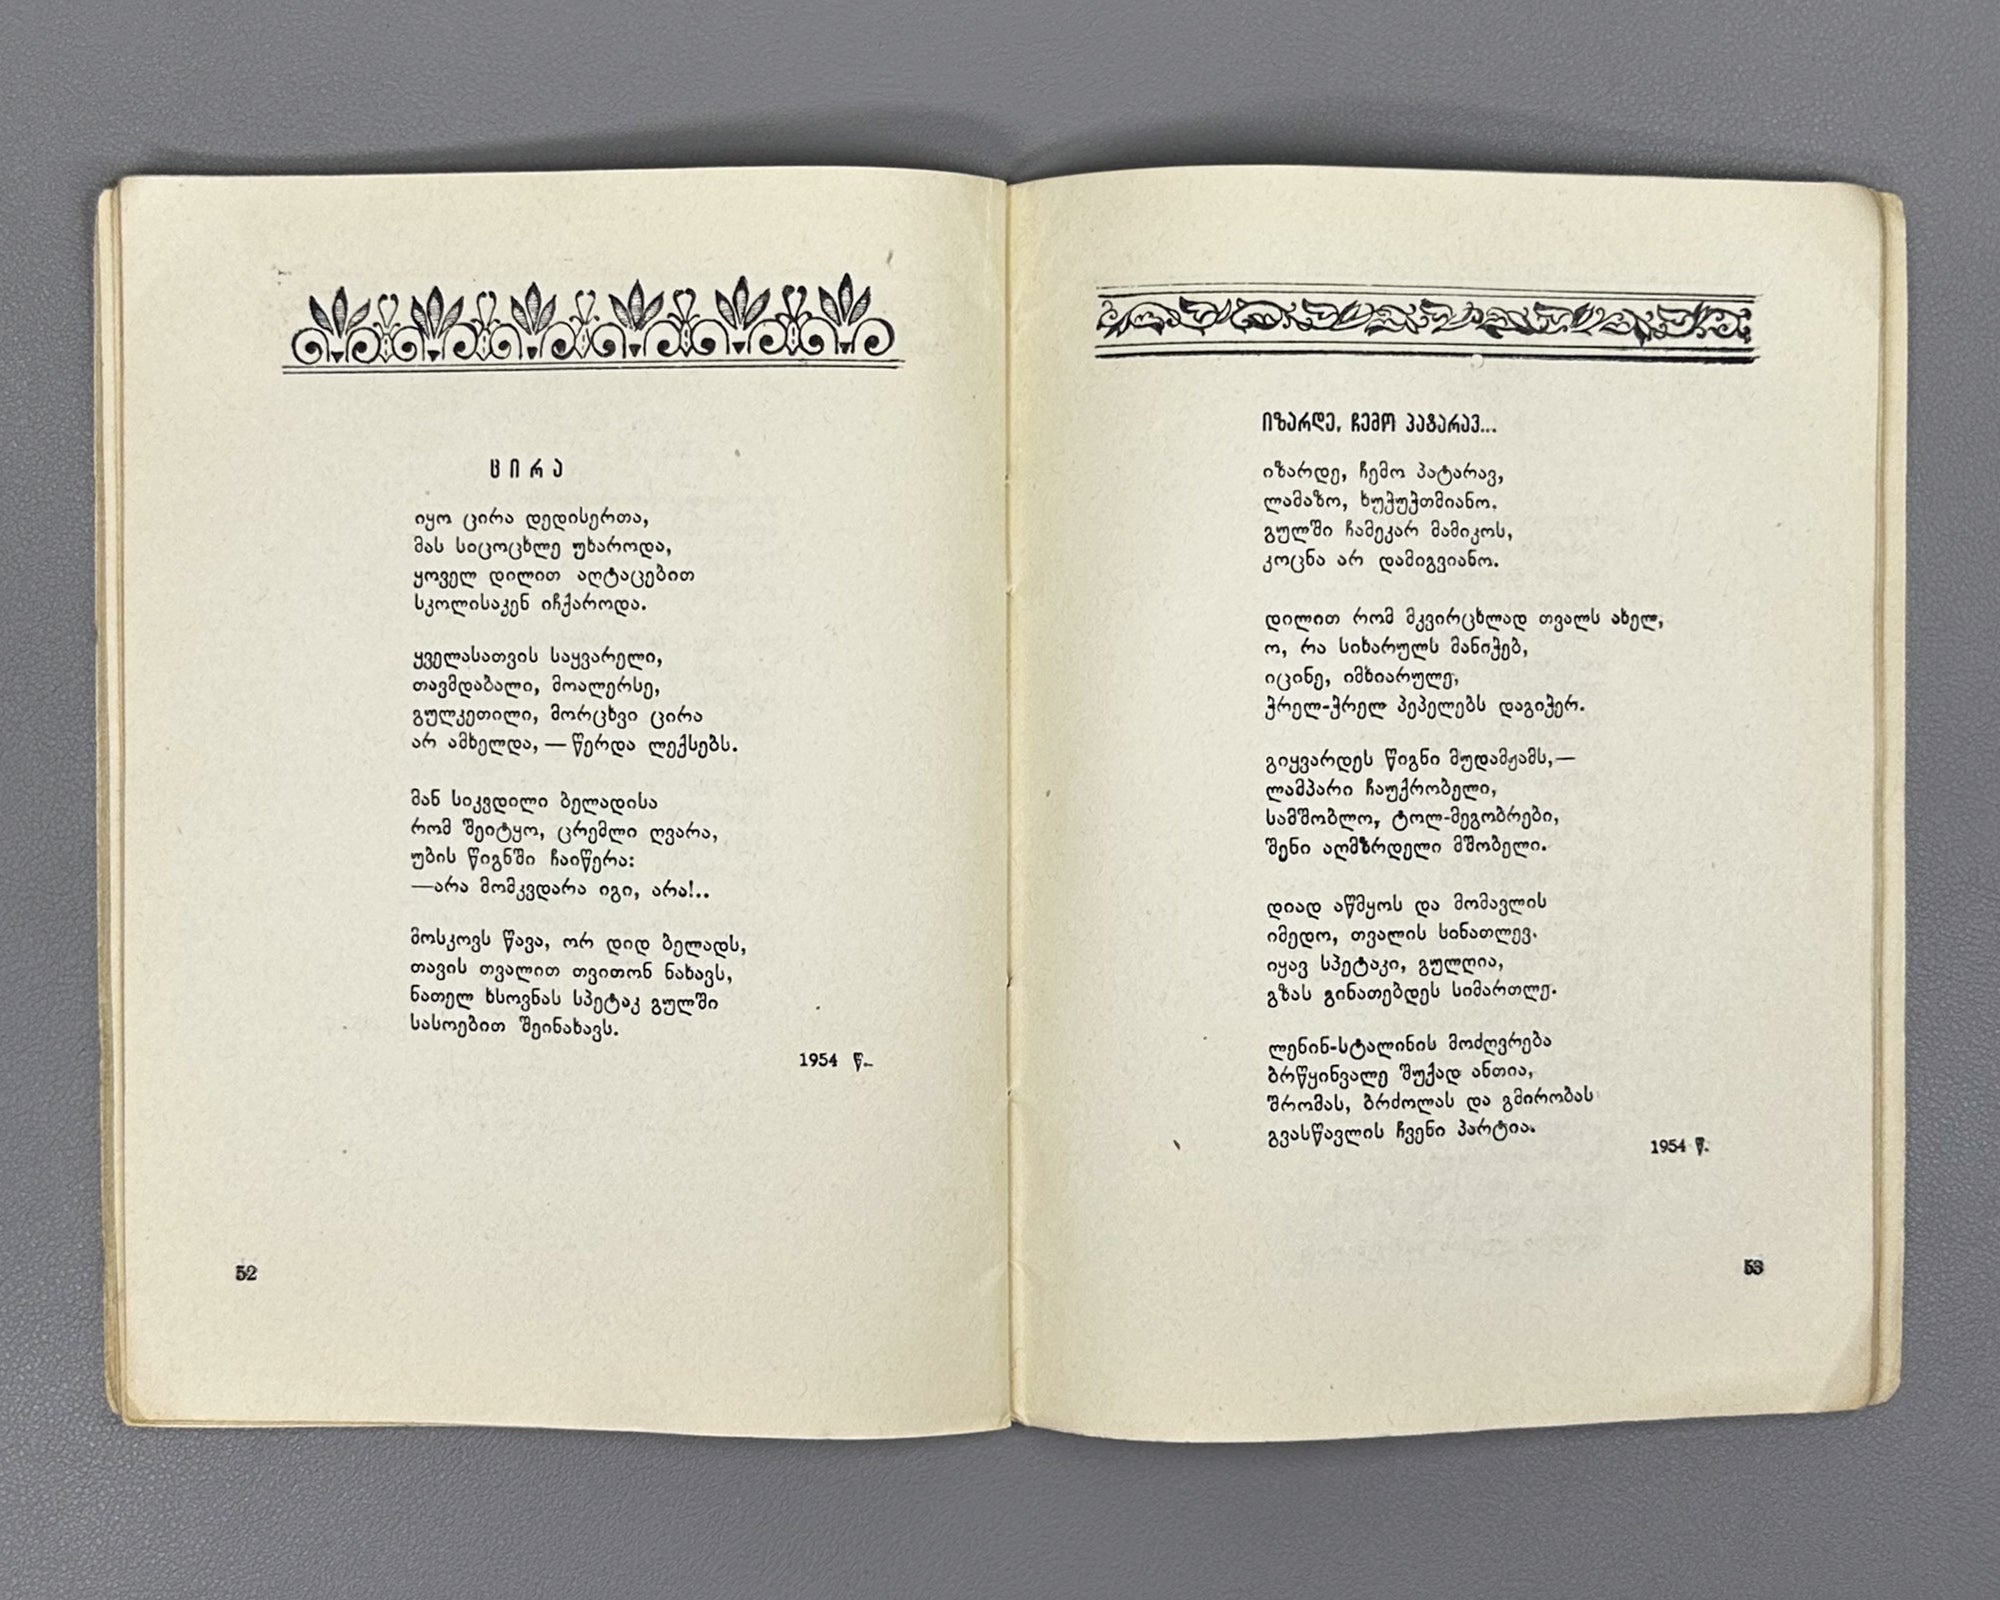 ცირა
იყო ცირა დედისერთა,
მას სიცოცხლე უხაროდა,
ყოველ დილით აღტაცებით
სკოლისაკენ იჩქაროდა.
ყველასათვის საყვარელი,
თავმდაბალი, მოალერსე,
გულკეთილი, მორცხვი ცირა
არ ამხელდა, — წერდა ლექსებს.
მან სიკვდილი ბელადისა
რომ შეიტყო, ცრემლი ღვარა,
უბის წიგნში ჩაიწერა:
—არა მომკვდარა იგი, არა!..
მოსკოვს წავა, ორ დიდ ბელადს,
თავის თვალით თვითონ ნახავს,
ნათელ ხსოვნას სპეტაკ გულში
სასოებით შეინახავს.
1954 წ.
52
იზარდე, ჩემო პატარავ...
იზარდე, ჩემო პატარავ,
ლამაზო, ხუჭუჭთმიანო.
გულში ჩამეკარ მამიკოს,
კოცნა არ დამიგვიანო.
დილით რომ მკვირცხლად თვალს ახელ,
ო, რა სიხარულს მანიჭებ,
იცინე, იმხიარულე,
ჭრელ-ჭრელ პეპელებს დაგიჭერ.
გიყვარდეს წიგნი მუდამჟამს,—
ლამპარი ჩაუქრობელი,
სამშობლო, ტოლ-მეგობრები,
შენი აღმზრდელი მშობელი.
დიად აწმყოს და მომავლის
იმედო, თვალის სინათლევ.
იყავ სპეტაკი, გულღია,
გზას გინათებდეს სიმართლე.
ლენინ-სტალინის მოძღვრება
ბრწყინვალე შუქად ანთია,
შრომას, ბრძოლას და გმირობას
გვასწავლის ჩვენი პარტია.
1954 წ.
53